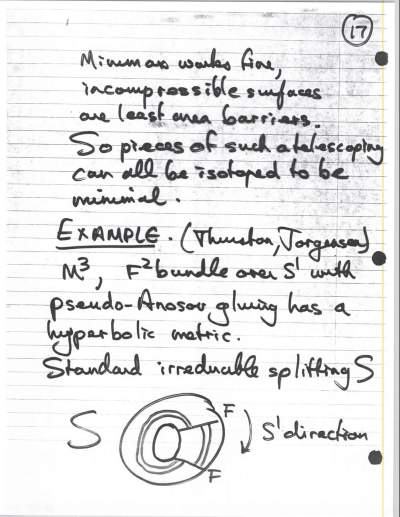 17
Minimax works fine,
incompressible surfaces
are least area barriers.
So pieces of such a telescoping
can all be isotoped to be
minimal.
EXAMPLE. (Thurston, Jorgensen)
M³, F² bundle over S¹ with
pseudo-Anosov gluing has a
hyperbolic metric.
Standard irreducable splitting S
S F S¹ direction
F